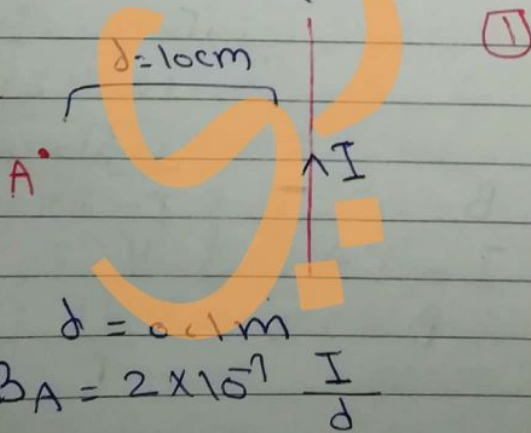 ①
d=10cm
A
I
d = 0.1m
B_A = 2×10⁻⁷ I/d